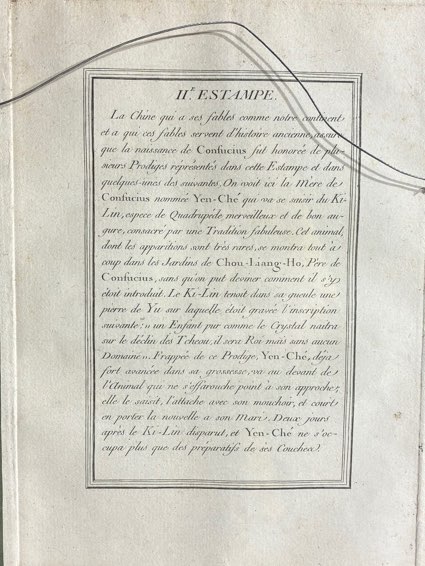 II.E ESTAMPE.
La Chine qui a ses fables comme notre continent
et a qui ces fables servent d'histoire ancienne, assure
que la naissance de Confucius fut honorée de plu-
sieurs Prodiges représentés dans cette Estampe et dans
quelques-unes des suivantes. On voit ici la Mere de
Confucius nommée Yen-Ché qui va se saisir du Ki-
Lin, espece de Quadrupéde merveilleux et de bon au-
gure, consacré par une Tradition fabuleuse. Cet animal,
dont les apparitions sont très rares, se montra tout à
coup dans les Jardins de Chou-Liang-Ho, Pere de
Confucius, sans qu'on put deviner comment il s'y
étoit introduit. Le Ki-Lin tenoit dans sa gueule une
pierre de Yu sur laquelle étoit gravée l'inscription
suivante: » un Enfant pur comme le Crystal naitra
sur le déclin des Tcheou, il sera Roi mais sans aucun
Domaine ». Frappée de ce Prodige, Yen-Ché, déja
fort avancée dans sa grossesse, va au devant de
l'Animal qui ne s'effarouche point à son approche;
elle le saisit, l'attache avec son mouchoir, et court
en porter la nouvelle a son Mari. Deux jours
après le Ki-Lin disparut, et Yen-Ché ne s'oc-
cupa plus que des préparatifs de ses Couches.